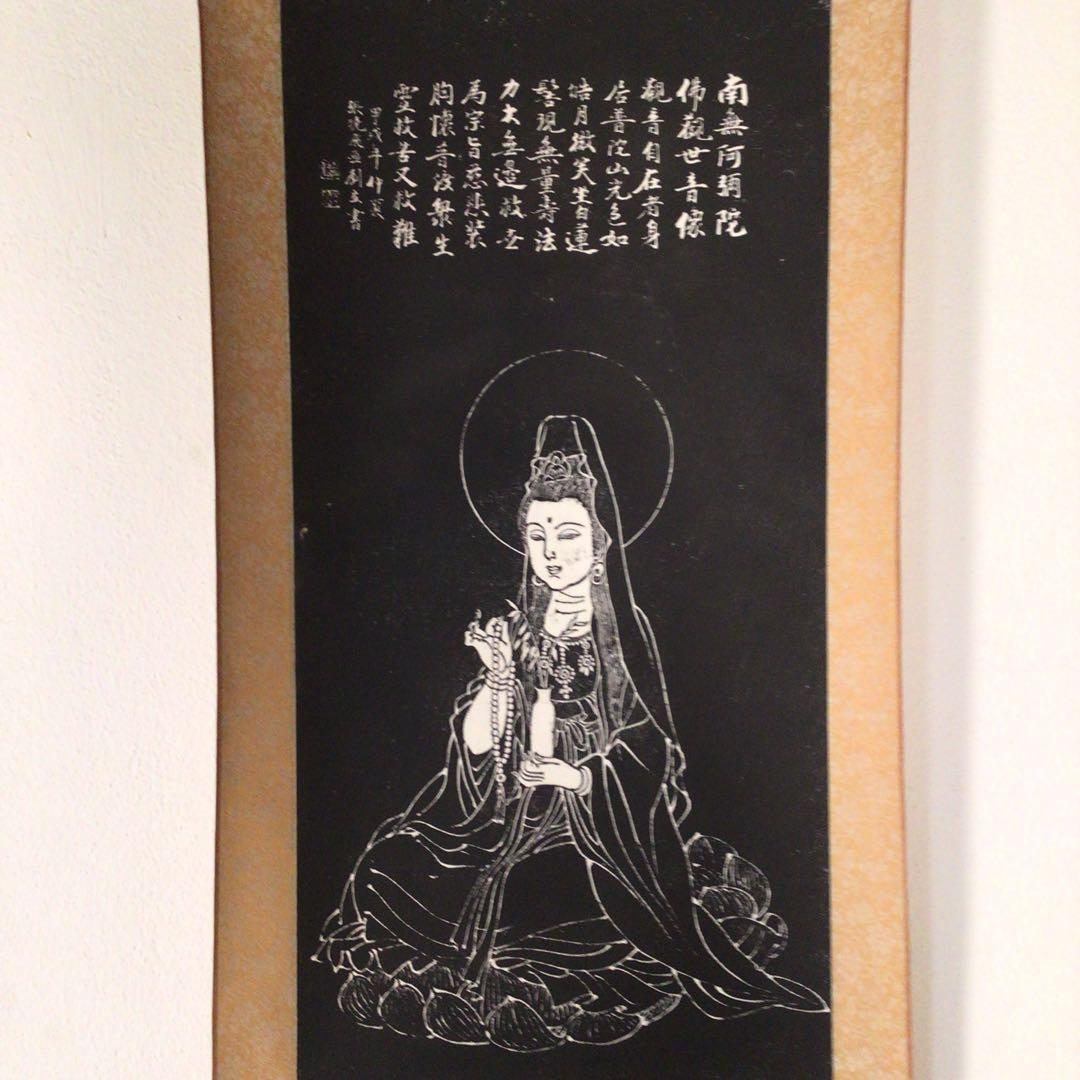 南無阿彌陀
佛觀世音像
觀音自在者身
居普陀山光色如
皓月微笑坐白蓮
髻現無量壽法
力大無邊救世
為宗旨慈悲裝
胸懷普渡眾生
靈救苦又救難
甲戌年仲夏
張曉晨画刘立書